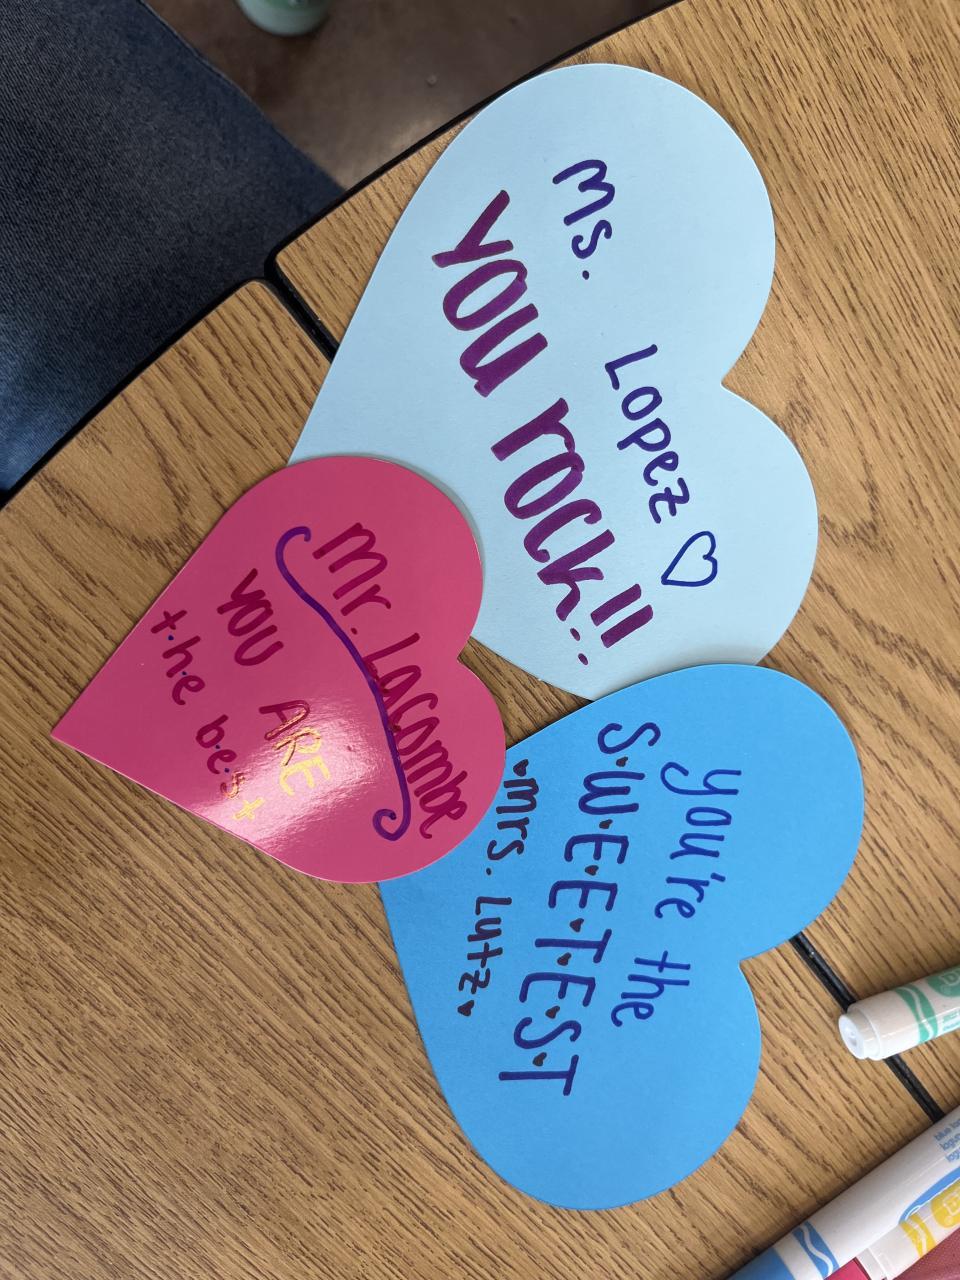 Ms. Lopez ♡
YOU rock!!
Mr. Lacombe
YOU ARE
the best
you're the
S·W·E·E·T·E·S·T
·Mrs. Lutz·